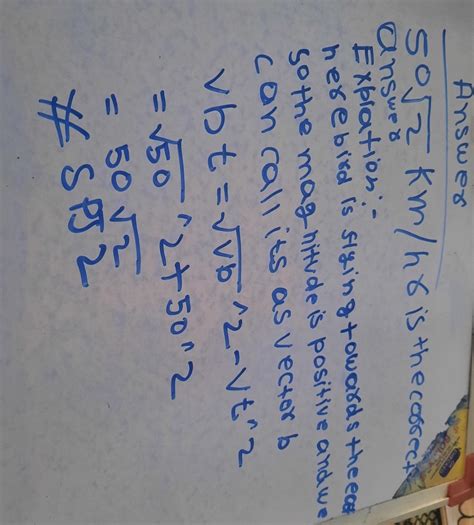 Answer
50√2 km/hr is the correct
answer
Explation:-
here bird is flying towards the east
so the mag.nitude is positive and we
can call its as vector b
vbt = √vb^2-vt^2
= √50^2+50^2
= 50√2
#SPJ2